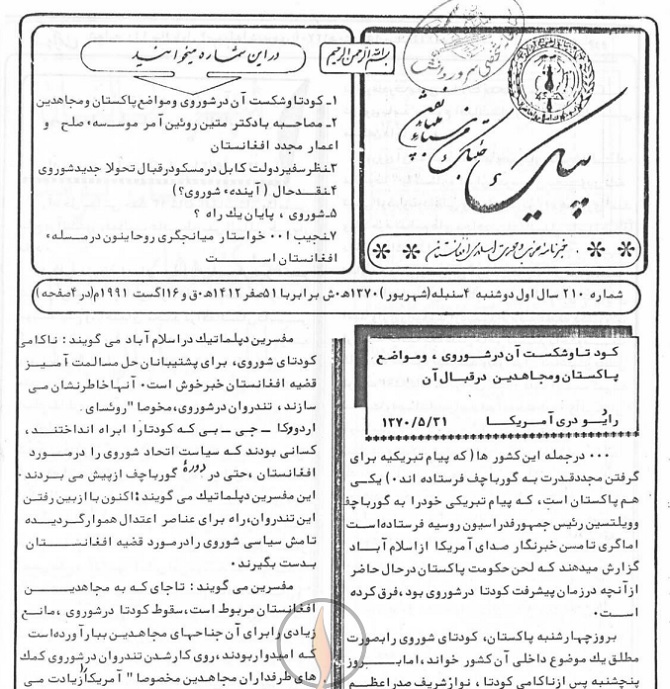 بسم الله الرحمن الرحیم
پیام
خبرنامه حزب وحدت اسلامی افغانستان
در این شماره میخوانید
۱ـ کودتا وشکست آن در شوروی ومواضع پاکستان ومجاهدین
۲ـ مصاحبه بادکتر متین روئین آمر موسسه، صلح و
اعمار مجدد افغانستان
۳ـنظر سفیر دولت کابل در مسکو درقبال تحولا جدید شوروی
۴ـنقد حال ( آینده، شوروی؟)
۵ـ شوروی ، پایان یك راه ؟
۷ـنجیب ا۰۰ خواستار میانجگری روحانیون درمسله،
افغانستان است
شماره ۲۱۰ سال اول دوشنبه ۴سنبله (شهریور) ۱۳۷۰ه‍۰ش برابر با ۵۱صفر ۱۴۱۲ه‍۰ق و۱۶اگست ۱۹۹۱م(در۴صفحه)
کود تا وشکست آن در شوروی ، ومواضع
پاکستان ومجاهدین درقبال آن
رادیو دری آمریکا ۱۳۷۰/۵/۳۱
۰۰۰ درجمله این کشور ها ( که پیام تبریکیه برای
گرفتن مجدد قدرت به گورباچف فرستاده اند۰) یکی
هم پاکستان است، که پیام تبریکی خودرا به گورباچف
وویلتسین رئیس جمهور فدراسیون روسیه فرستاده است
اماگری تامسن خبرنگار صدای آمریکا ازاسلام آباد
گزارش میدهند که لحن حکومت پاکستان درحال حاضر
ازآنچه درزمان پیشرفت کودتا درشوروی بود،فرق کرده
است۰
بروز چهارشنبه پاکستان، کودتای شوروی رابصورت
مطلق یك موضوع داخلی آن کشور خواند، امابروز
پنجشنبه پس ازناکامی کودتا ، نواز شریف صدراعظم
مفسرین دپلماتیك دراسلام آباد می گویند : ناکامی
کودتای شوروی، برای پشتیبانان حل مسالمت آمیز
قضیه افغانستان خبر خوش است۰ آنها خاطرنشان می
سازند ، تندروان درشوروی، مخوصا "روئسای
اردووکا ـ جی ـ بی که کودتارا ابراه انداختند،
کسانی بودند که سیاست اتحاد شوروی را درمورد
افغانستان ،حتی در دورهٔ گورباچف ازپیش می بردند۰
این مفسرین دپلماتیك می گویند: اکنون باازبین رفتن
این تندروان، راه برای عناصر اعتدال هموارگردیده
تامش سیاسی شوروی رادرمورد قضیه افغانستان
بدست بگیرند۰
مفسرین می گویند : تاجای که به مجاهدین
افغانستان مربوط است، سقوط کودتا درشوروی ،مانع
زیادی رابرای آن جناحهای مجاهدین ببارآورده است
که امیدواربودند، روی کارشدن تندروان درشوروی کمك
های طرفداران مجاهدین مخصوصا" آمریکا رازیادت می